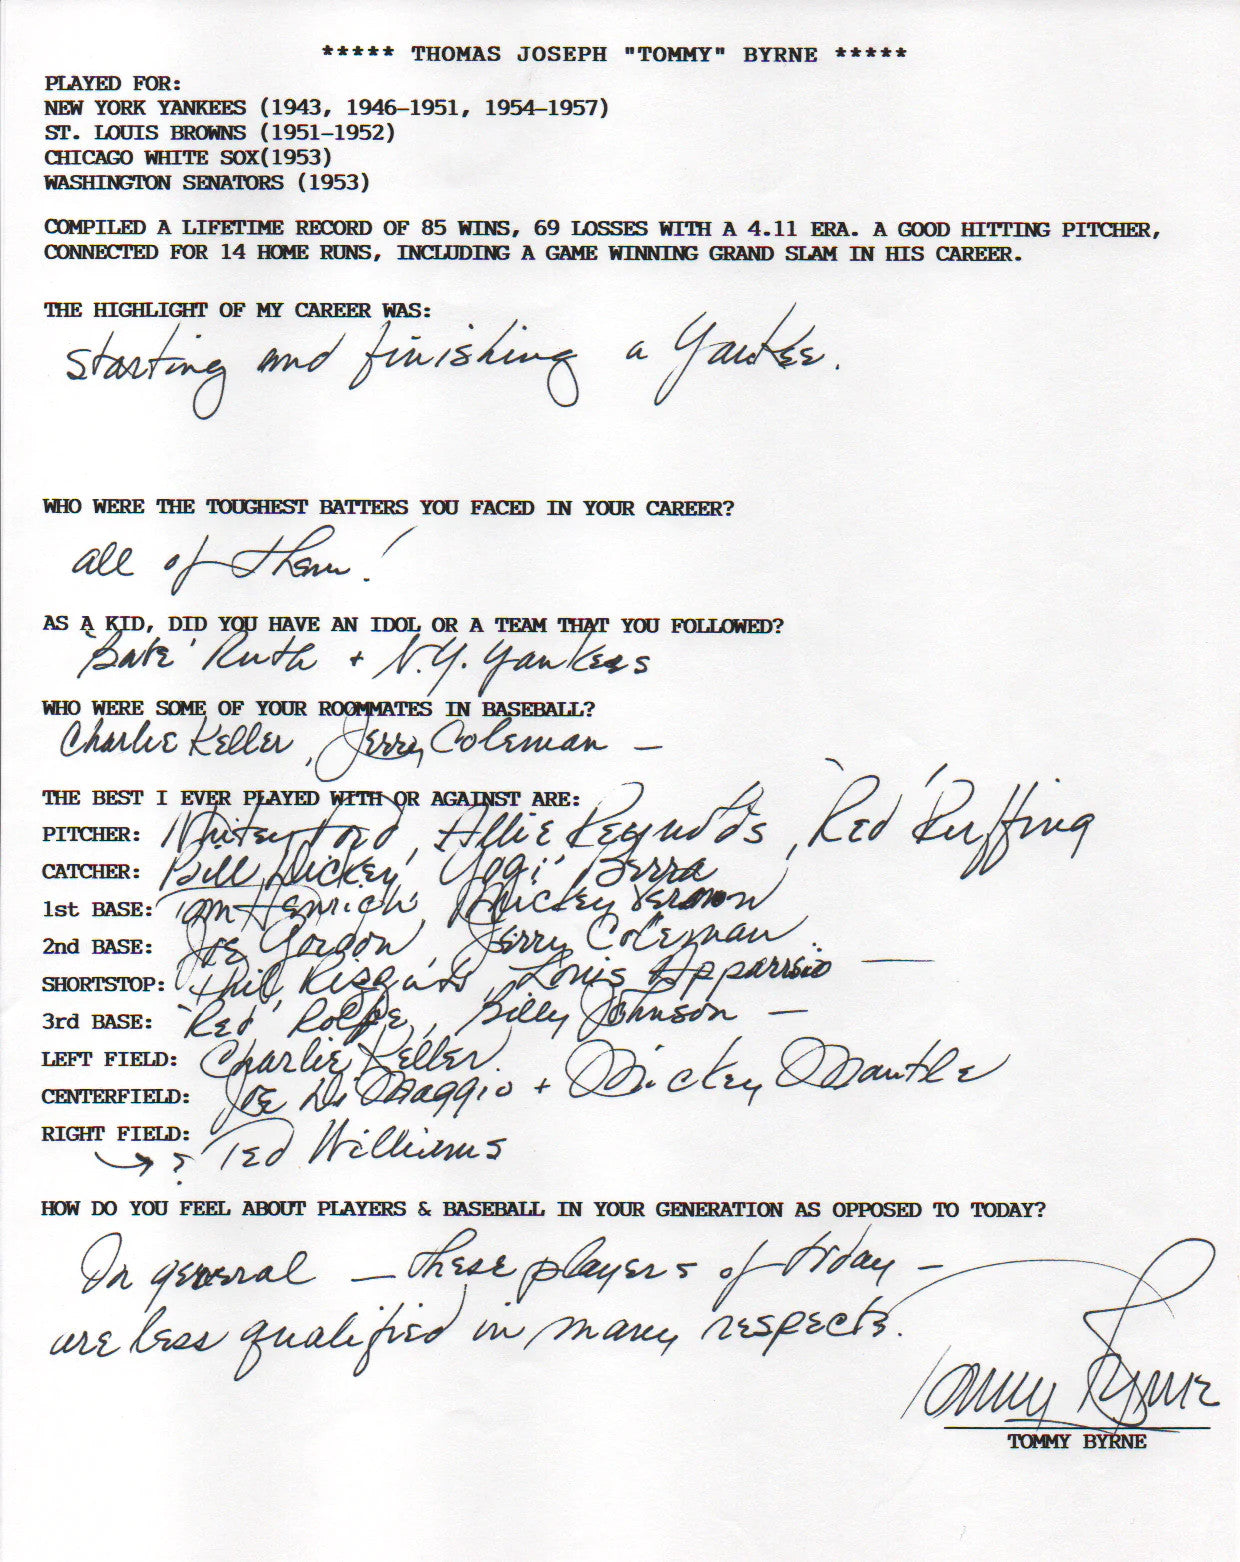 ***** THOMAS JOSEPH "TOMMY" BYRNE *****
PLAYED FOR:
NEW YORK YANKEES (1943, 1946-1951, 1954-1957)
ST. LOUIS BROWNS (1951-1952)
CHICAGO WHITE SOX(1953)
WASHINGTON SENATORS (1953)
COMPILED A LIFETIME RECORD OF 85 WINS, 69 LOSSES WITH A 4.11 ERA. A GOOD HITTING PITCHER,
CONNECTED FOR 14 HOME RUNS, INCLUDING A GAME WINNING GRAND SLAM IN HIS CAREER.
THE HIGHLIGHT OF MY CAREER WAS:
Starting and finishing a Yankee.
WHO WERE THE TOUGHEST BATTERS YOU FACED IN YOUR CAREER?
all of them!
AS A KID, DID YOU HAVE AN IDOL OR A TEAM THAT YOU FOLLOWED?
'Babe' Ruth + N.Y. Yankees
WHO WERE SOME OF YOUR ROOMMATES IN BASEBALL?
Charlie Keller, Jerry Coleman —
THE BEST I EVER PLAYED WITH OR AGAINST ARE:
PITCHER: Whitey Ford, Allie Reynolds, 'Red' Ruffing
CATCHER: Bill Dickey, 'Yogi' Berra
1st BASE: Tom Henrich, Mickey Vernon
2nd BASE: Joe Gordon, Jerry Coleman
SHORTSTOP: Phil Rizzuto, Louis Apparisio —
3rd BASE: 'Red' Rolfe, Billy Johnson —
LEFT FIELD: Charlie Keller
CENTERFIELD: Joe DiMaggio + Mickey Mantle
RIGHT FIELD:
→ ? Ted Williams
HOW DO YOU FEEL ABOUT PLAYERS & BASEBALL IN YOUR GENERATION AS OPPOSED TO TODAY?
In general — these players of today —
are less qualified in many respects.
Tommy Byrne
TOMMY BYRNE